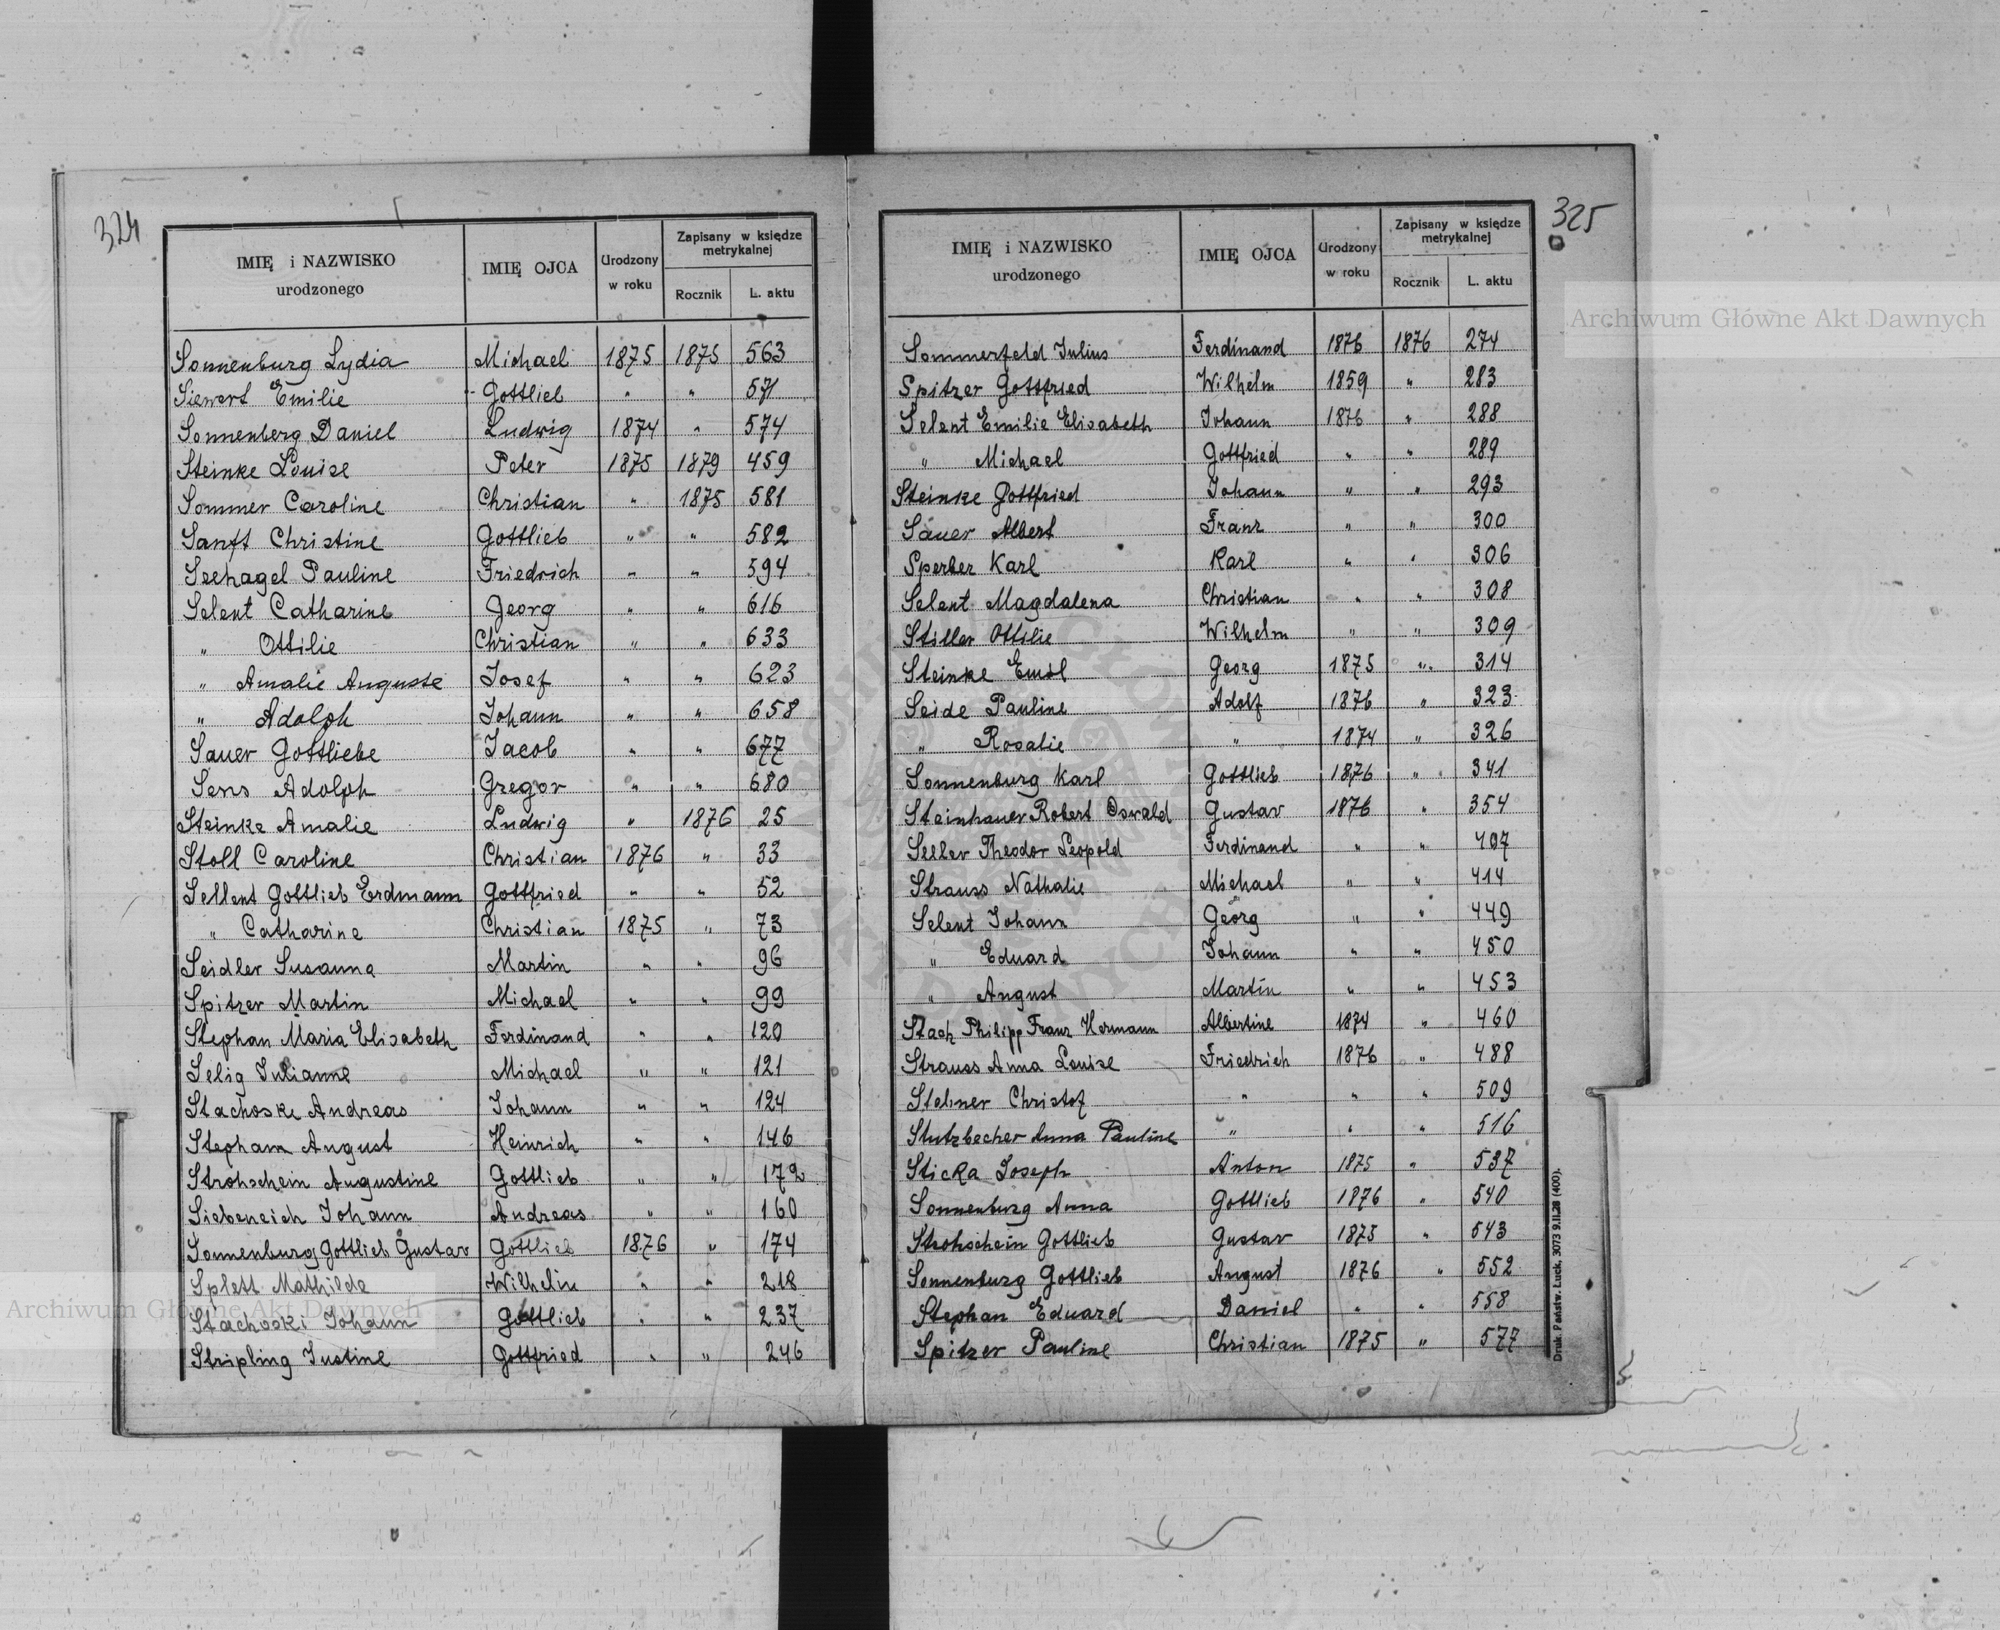 324
IMIĘ i NAZWISKO urodzonego | IMIĘ OJCA | Urodzony w roku | Zapisany w księdze metrykalnej
Rocznik | L. aktu
Sonnenburg Lydia | Michael | 1875 | 1875 | 563
Siewert Emilie | Gottlieb | " | " | 571
Sonnenberg Daniel | Ludwig | 1874 | " | 574
Steinke Louise | Peter | 1875 | 1879 | 459
Sommer Caroline | Christian | " | 1875 | 581
Sanft Christine | Gottlieb | " | " | 582
Seehagel Pauline | Friedrich | " | " | 594
Selent Catharine | Georg | " | " | 616
" Ottilie | Christian | " | " | 633
" Amalie Auguste | Josef | " | " | 623
" Adolph | Johann | " | " | 658
Sauer Gottliebe | Jacob | " | " | 677
Sens Adolph | Gregor | " | " | 680
Steinke Amalie | Ludwig | " | 1876 | 25
Stoll Caroline | Christian | 1876 | " | 33
Sellent Gottlieb Erdmann | Gottfried | " | " | 52
" Catharine | Christian | 1875 | " | 73
Seidler Susanna | Martin | " | " | 96
Spitzer Martin | Michael | " | " | 99
Stephan Maria Elisabeth | Ferdinand | " | " | 120
Selig Julianne | Michael | " | " | 121
Stachoske Andreas | Johann | " | " | 124
Stepham August | Heinrich | " | " | 146
Strohschein Augustine | Gottlieb | " | " | 172
Siebeneich Johann | Andreas | " | " | 160
Sonnenburg Gottlieb Gustav | Gottlieb | 1876 | " | 174
Splett Mathilde | Wilhelm | " | " | 218
Stachoski Johann | Gottlieb | " | " | 237
Stripling Justine | Gottfried | " | " | 246
325
IMIĘ i NAZWISKO urodzonego | IMIĘ OJCA | Urodzony w roku | Zapisany w księdze metrykalnej
Rocznik | L. aktu
Sommerfeld Julius | Ferdinand | 1876 | 1876 | 274
Spitzer Gottfried | Wilhelm | 1859 | " | 283
Selent Emilie Elisabeth | Johann | 1876 | " | 288
" Michael | Gottfried | " | " | 289
Steinke Gottfried | Johann | " | " | 293
Sauer Albert | Franz | " | " | 300
Sperber Karl | Karl | " | " | 306
Selent Magdalena | Christian | " | " | 308
Stiller Ottilie | Wilhelm | " | " | 309
Steinke Emil | Georg | 1875 | " | 314
Seide Pauline | Adolf | 1876 | " | 323
" Rosalie | " | 1874 | " | 326
Sonnenburg Karl | Gottlieb | 1876 | " | 341
Steinhauer Robert Oswald | Gustav | 1876 | " | 354
Seller Theodor Leopold | Ferdinand | " | " | 407
Strauss Nathalie | Michael | " | " | 414
Selent Johann | Georg | " | " | 449
" Eduard | Johann | " | " | 450
" August | Martin | " | " | 453
Stach Philipp Franz Hermann | Albertine | 1874 | " | 460
Strauss Anna Louise | Friedrich | 1876 | " | 488
Stebner Christof | " | " | " | 509
Stutzbecher Anna Pauline | " | " | " | 516
Sticka Joseph | Anton | 1875 | " | 537
Sonnenburg Anna | Gottlieb | 1876 | " | 540
Strohschein Gottlieb | Gustav | 1875 | " | 543
Sonnenburg Gottlieb | August | 1876 | " | 552
Stephan Eduard | Daniel | " | " | 558
Spitzer Pauline | Christian | 1875 | " | 577
Druk. Państw. Łuck, 3073 9.II.28 (400).
Archiwum Główne Akt Dawnych
Archiwum Główne Akt Dawnych